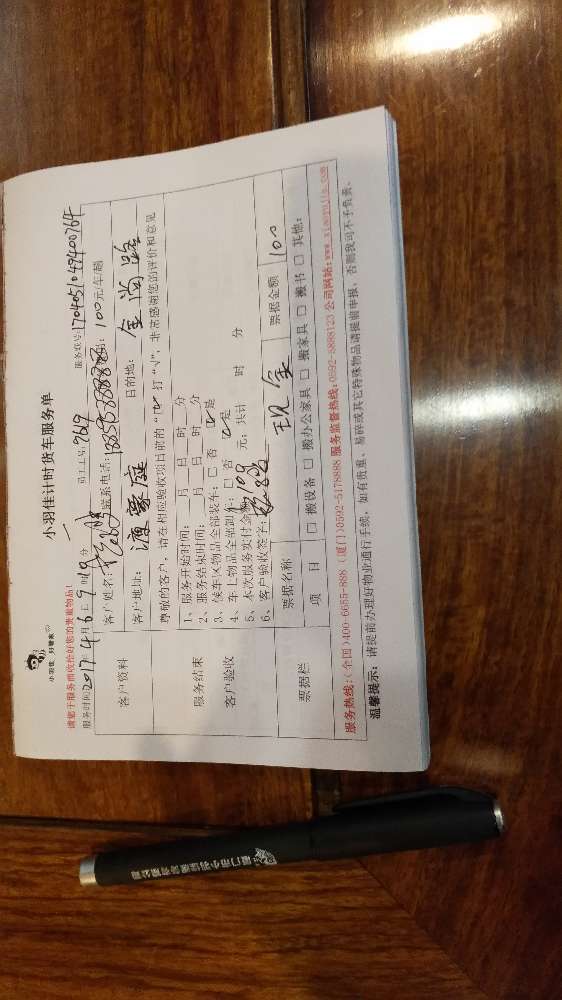 小羽佳计时货车服务单
小羽佳，好管家
请您于服务前收拾好您的贵重物品！
服务时间：2017年4月6日9时 分
员工工号：769
服务账号：170405109400764
客户资料
客户姓名：
联系电话：
100元/车/趟
客户地址：
豪庭
目的地：
金尚路
尊敬的客户，请在相应验收项目前的“□”打“√”，非常感谢您的评价和意见
服务结束
客户验收
1、服务开始时间： 月 日 时 分
2、服务结束时间： 月 日 时 分
3、候车区物品全部装车：□ 否 ☑ 是
4、车上物品全部卸车：□ 否 ☑ 是
5、本次服务实付金额：100 元；共计 时 分
6、客户验收签名：
票据栏
票据名称
现金
票据金额
100
项 目
□ 搬设备 □ 搬办公家具 □ 搬家具 □ 搬书 □ 其他：
服务热线：(全国)400-6655-888 (厦门)0592-5178888 服务监督热线：0592-5888123 公司网站：www.xiaoyujia.com
温馨提示：请提前办理好物业通行手续，如有贵重、易碎或其它特殊物品请提前申报，否则我司不予负责。
厦门市小羽佳家政有限公司